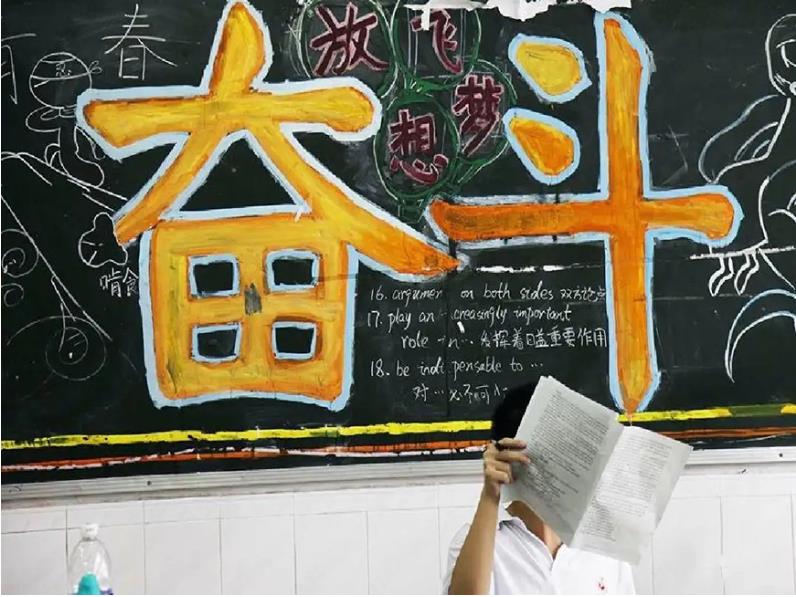 春
放飞
梦想
奋斗
啃食
16. argumen on both sides 双方论点
17. play an creasingly important
role in… 发挥着日益重要作用
18. be indi pensable to …
对 … 必不可